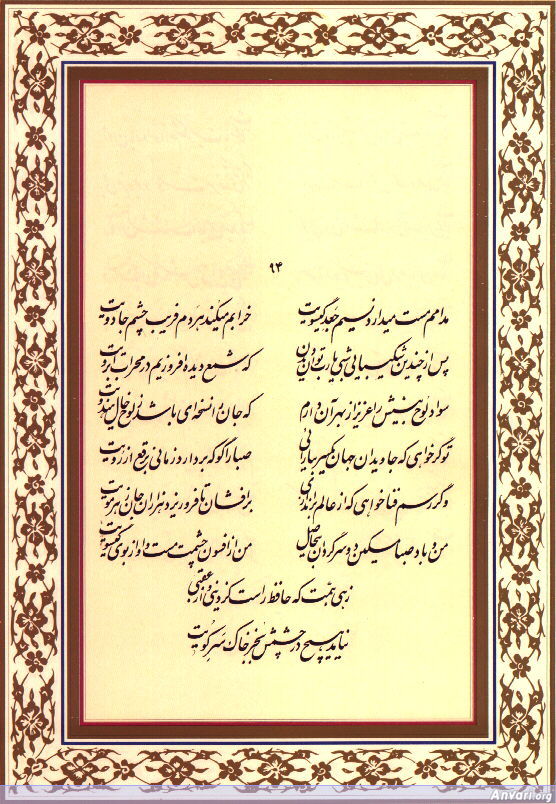 ۹۴
مدامم مست میدارد نسیم جعد گیسویت خرابم میکند هر دم فریب چشم جادویت
پس از چندین شکیبایی شبی یارب توان دیدن که شمع دیده افروزیم در محراب ابرویت
سواد لوح بینش را عزیز از بهر آن دارم که جان را نسخه‌ای باشد ز لوح خال هندویت
تو گر خواهی که جاویدان جهان یکسر بیارائی صبا را گو که بردارد زمانی برقع از رویت
وگر رسم فنا خواهی که از عالم براندازی برافشان تا فرو ریزد هزاران جان ز هر مویت
من و باد صبا مسکین دو سرگردان بیحاصل من از افسون چشمت مست و او از بوی گیسویت
زهی همت که حافظ راست کز دنیی و از عقبی
نیاید هیچ در چشمش بجز خاک سر کویت
Anvari.org